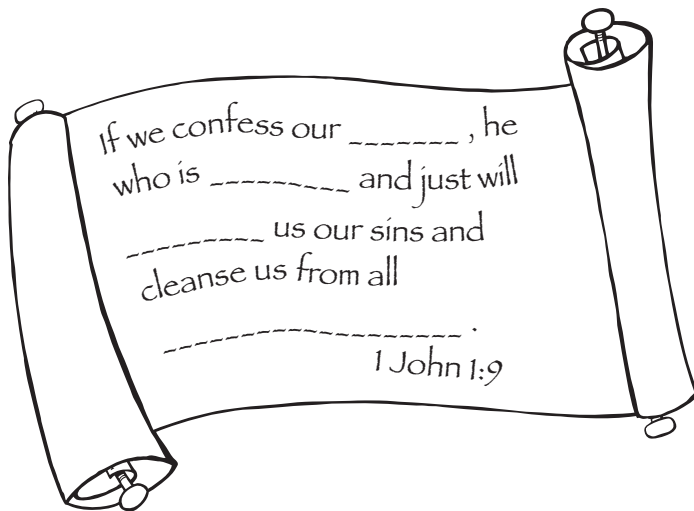 If we confess our _______ , he
who is _________ and just will
_________ us our sins and
cleanse us from all
___________________ .
1 John 1:9